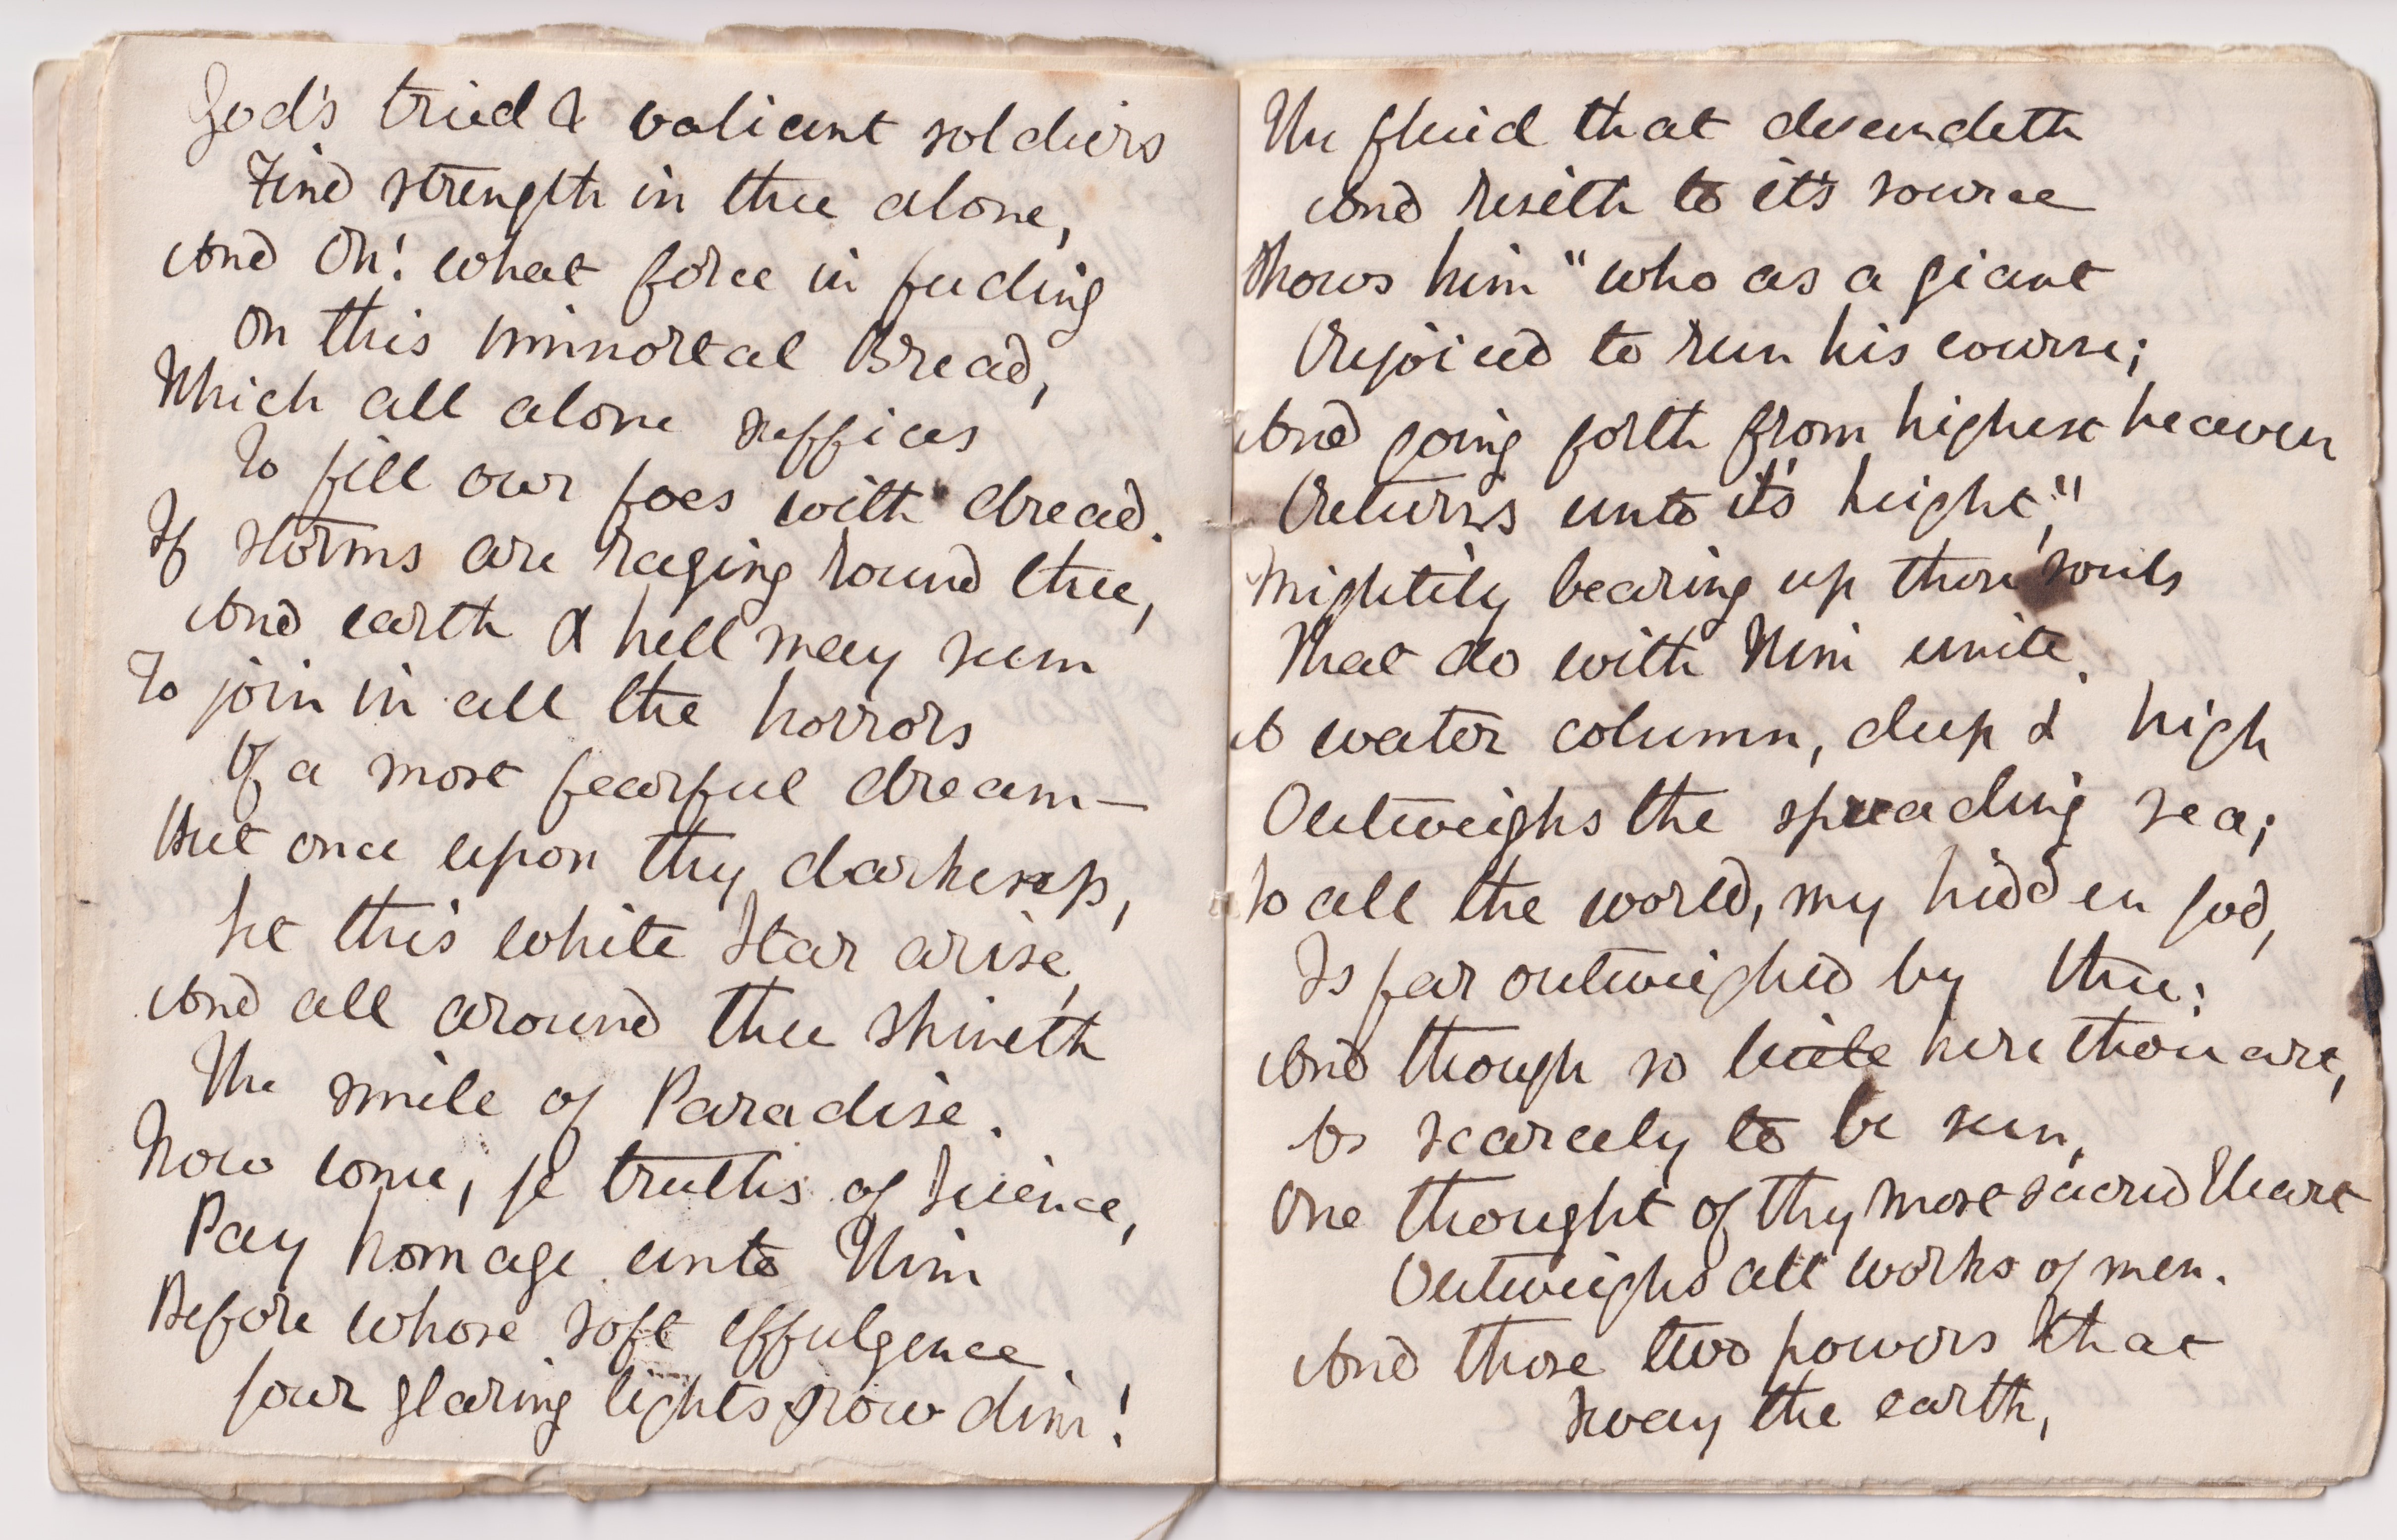 God's tried & valiant soldiers
Find strength in thee alone,
And Oh! what force in feeding
On this immortal Bread,
Which all alone suffices
To fill our foes with dread.
If storms are raging round thee,
And earth & hell may seem
To join in all the horrors
Of a most fearful dream—
But once upon thy darkness,
Let this white Star arise,
And all around thee shineth
The smile of Paradise.
Now come, ye truths of Science,
Pay homage unto Him
Before whose soft effulgence
Your glaring lights grow dim!
The fluid that descendeth
And riseth to it's source
Shows him "who as a giant
Rejoiced to run his course;
And going forth from highest heaven
Returns unto it's height",
Mightily bearing up those souls
That do with Him unite.
A water column, deep & high
Outweighs the spreading sea;
So all the world, my hidden God,
Is far outweighed by thee;
And though so little here thou art,
As scarcely to be seen,
One thought of thy most sacred Heart
Outweighs all works of men.
And those two powers that
Sway the earth,